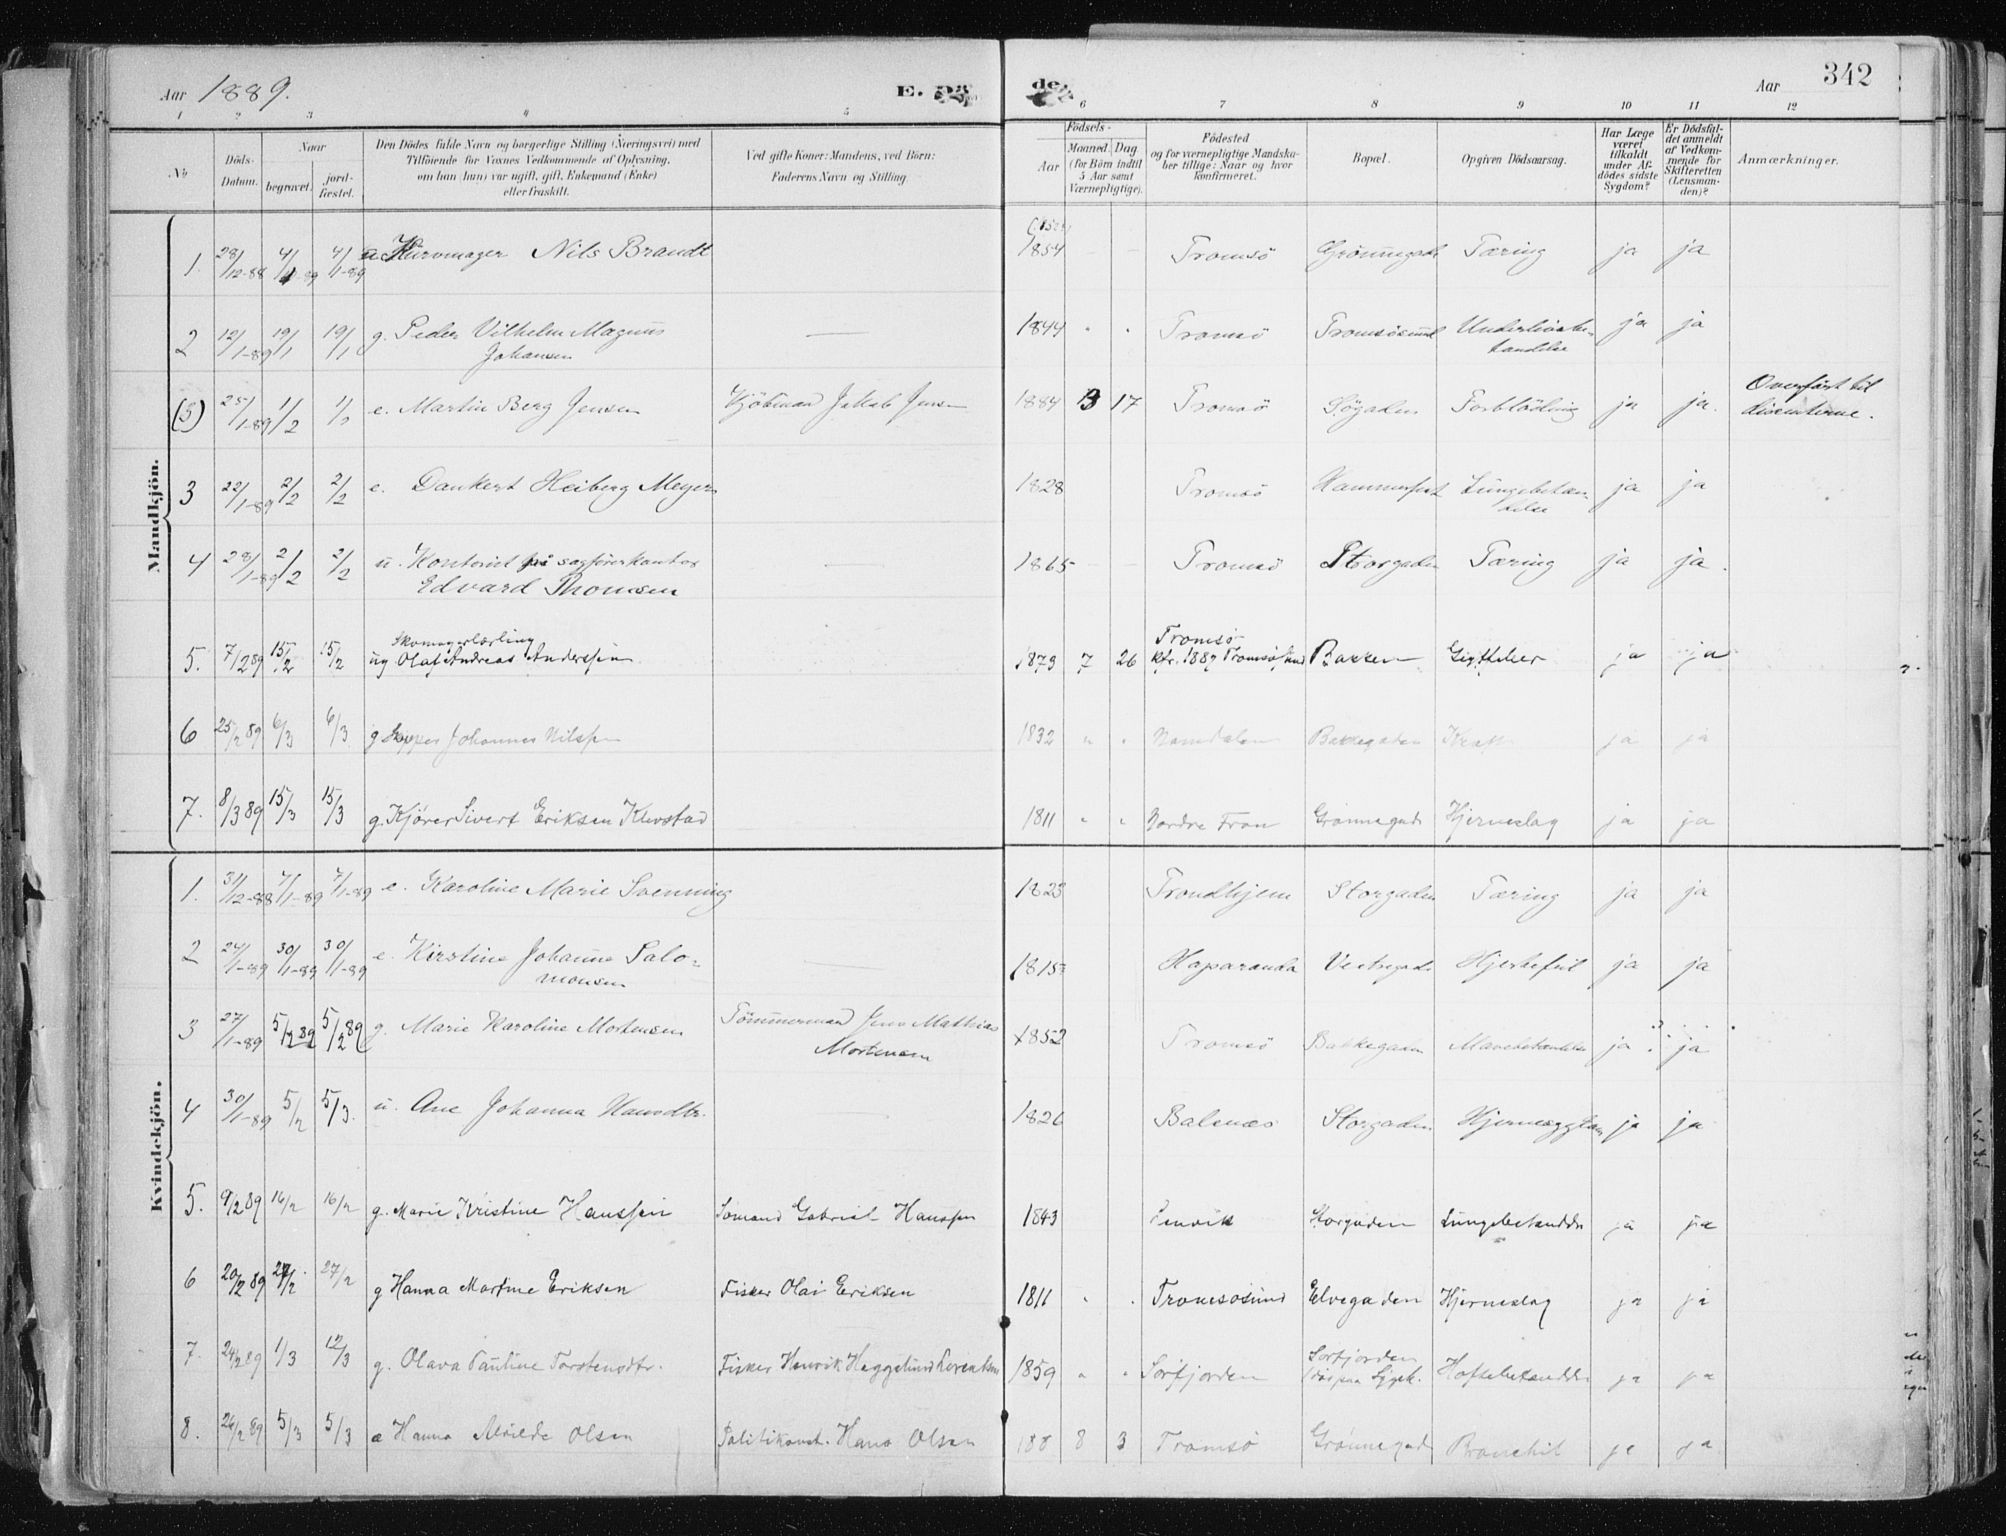 Aar 1889. E. Dö de. Aar 342
1 2 3 4 5 6 7 8 9 10 11 12
No
Döds-Datum.
Naar
begravet.
jordfæstet.
Den Dödes fulde Navn og borgerlige Stilling (Næringsvei) med
Tilföiende for Voxnes Vedkommende af Oplysning,
om han (hun) var ugift, gift, Enkemand (Enke)
eller fraskilt.
Ved gifte Koner: Mandens, ved Börn:
Faderens Navn og Stilling.
Födsels-
Aar
Maaned. Dag
(for Börn indtil
5 Aar samt
Værnepligtige).
Födested
og for værnepligtige Mandska-
ber tillige: Naar og hvor
konfirmeret.
Bopæl.
Opgiven Dödsaarsag.
Har Læge
været
tilkaldt
under Af-
dödes sidste
Sygdom?
Er Dödsfal-
det anmeldt
af Vedkom-
mende for
Skifteretten
(Lensman-
den)?
Anmærkninger.
Mandkjön.
1. 28/12-88 4/1-89 4/1-89 Kurvmager Nils Brandt 1854 Tromsö Grönnegade Tæring ja ja
2 12/1-89 19/1 19/1 g. Peder Vilhelm Magnus 1844 " " Tromsö Tromsösund Underlivsbe- ja ja
Johansen tændelse
(5) 25/1-89 1/2 1/2 e. Martin Berg Jensen Kjöbmand Jakob Jensen 1884 3 17 Tromsö Sögaden Forblödning ja ja. Overfört til
disenterne.
3 22/1-89 2/2 2/2 e. Dankert Heiberg Meyer 1828 Tromsö Hammerfest Lungebetæn- ja ja
delse
4 28/1-89 2/2 2/2 u. Kontorist på sagförerkontor 1865 Tromsö Storgaden Tæring ja ja.
Edvard Thomsen
Skomagerlærling Tromsö
5. 7/2 89 15/2 15/2 ug. Olaf Andreas Anderssen 1873 7 26 kfr. 1887 Tromsösund Bakken Gigtfeber ja ja
6 25/2 89 6/3 6/3 g Skipper Johannes Nilssen 1832 " " Namdalen Bakkegaden Kræft ja ja
7. 8/3 89 15/3 15/3 g. Kjörer Sivert Eriksen Klevstad 1811 " " Nordre Fron Grönnegade Hjerneslag ja ja
Kvindekjön.
1. 31/12-88 7/1-89 7/1-89 e. Karoline Marie Svenning 1823 Trondhjem Storgaden Tæring ja ja
2 24/1-89 30/1-89 30/1-89 e. Kirstine Johanne Salo- 1815 Haparanda Vestregade Hjertefeil ja ja
monsen
3 27/1-89 5/2 89 5/2 89 g. Marie Karoline Mortensen Tömmermand Jens Mathias 1852 Tromsö Bakkegaden Mavebetændelse ja ja
Mortensen
4 30/1-89 5/2 5/3. u. Ane Johanna Hansdtr. 1826 Balsnæs Storgaden ja ja
5. 9/2 89 16/2 16/2 g. Marie Kristine Hanssen Sömand Gabriel Hanssen 1843 Lenvik Storgaden Lungebetændelse ja ja
6 20/2 89 27/2 27/2 g Hanna Martine Eriksen Fisker Olai Eriksen 1811 " " Tromsösund Elvegaden Hjerneslag ja ja
7. 24/2 89 1/3 12/3 g. Olava Pauline Torstensdtr. Fisker Henrik Heggelund Lorentsen 1859 " " Sörfjorden Sörfjorden Hoftebetændelse ja ja
död paa Sygeh.
8. 26/2 89 5/3 5/3 Hanna Olsen Politikonst. Hans Olsen 188 8 3 Tromsö Grönnegade Bronchit ja ja